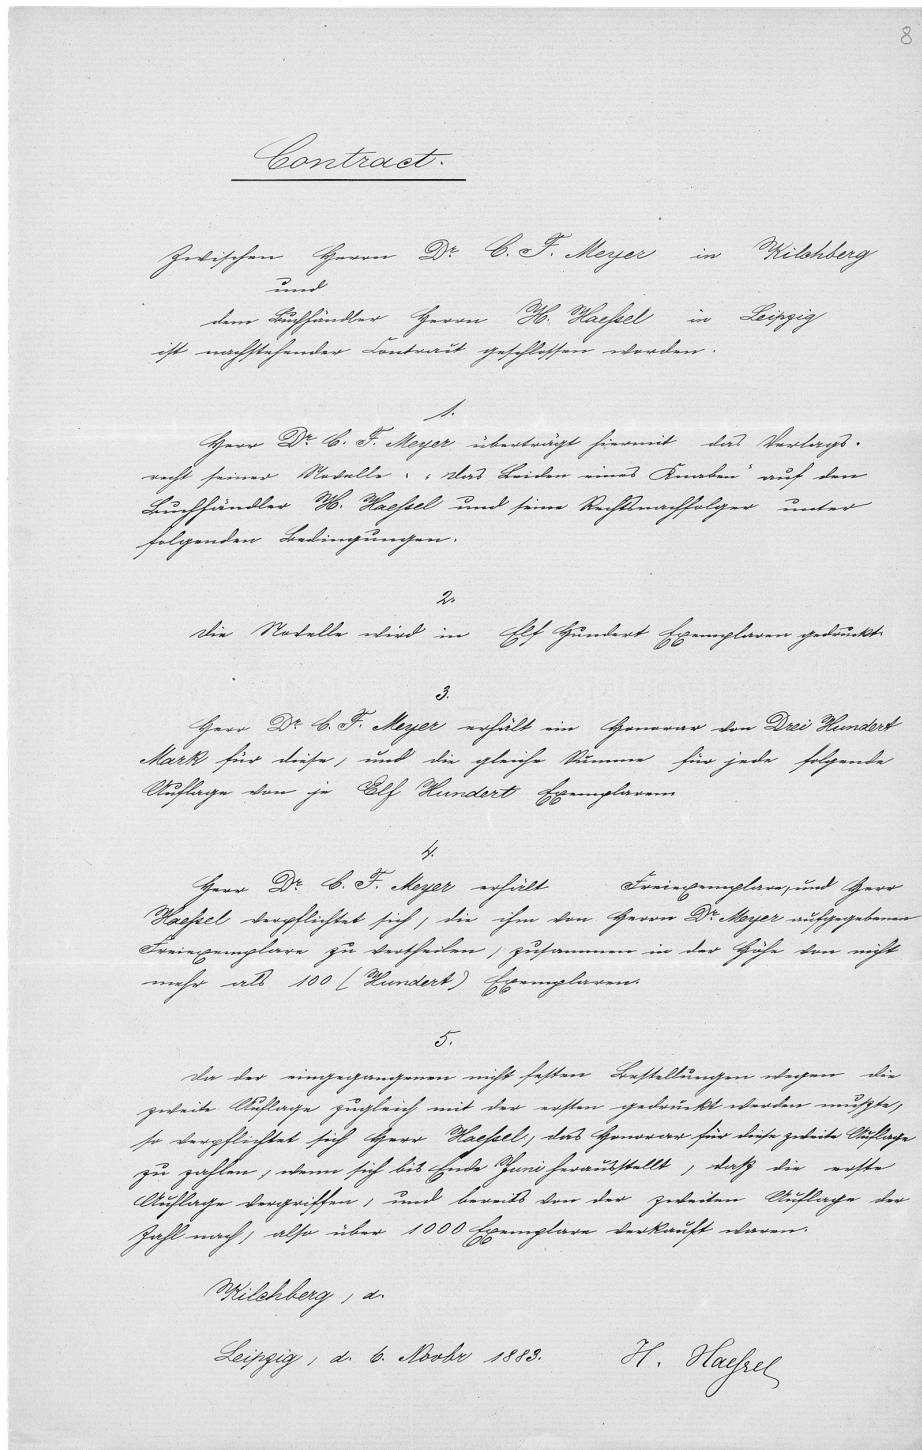 8
Contract.
Zwischen Herrn Dr. C. F. Meyer in Kilchberg
und
dem Buchhändler Herrn H. Haessel in Leipzig
ist nachstehender Contract geschlossen worden.
1.
Herr Dr. C. F. Meyer überträgt hiermit das Verlags-
recht seiner Novelle: „Das Leiden eines Knaben“ auf den
Buchhändler H. Haessel und seine Rechtsnachfolger unter
folgenden Bedingungen.
2.
Die Novelle wird in Elf Hundert Exemplaren gedruckt.
3.
Herr Dr. C. F. Meyer erhält ein Honorar von Drei Hundert
Mark für diese, und die gleiche Summe für jede folgende
Auflage von je Elf Hundert Exemplaren
4.
Herr Dr. C. F. Meyer erhält Freiexemplare, und Herr
Haessel verpflichtet sich, die ihm von Herrn Dr. Meyer aufgegebenen
Freiexemplare zu vertheilen, zusammen in der Höhe von nicht
mehr als 100 (Hundert) Exemplaren.
5.
Da der eingegangenen nicht festen Bestellungen wegen die
zweite Auflage zugleich mit der ersten gedruckt werden mußte,
so verpflichtet sich Herr Haessel, das Honorar für diese zweite Auflage
zu zahlen, wenn sich bis Ende Juni herausstellt, daß die erste
Auflage vergriffen, und bereits von der zweiten Auflage der
Zahl nach, also über 1000 Exemplare verkauft waren.
Kilchberg, d.
Leipzig, d. 6. Novbr 1883. H. Haessel